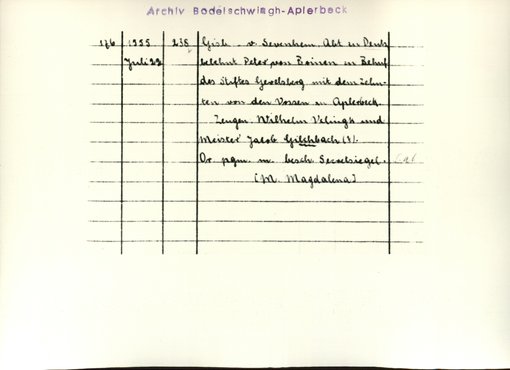 Archiv Bodelschwingh-Aplerbeck
176 1555 238 Gish. v. Sevenhem, Abt in Deutz
Juli 22 belehnt Peter von Boinen in Behuf
des Stiftes Gevelsberg mit dem Zehn-
ten von den Vossen in Aplerbeck.
Zeugen Wilhelm Velingh und
Meister Jacob Gilchbach (?).
Or. pgm. m. besch. Secretsiegel.
[M. Magdalena]